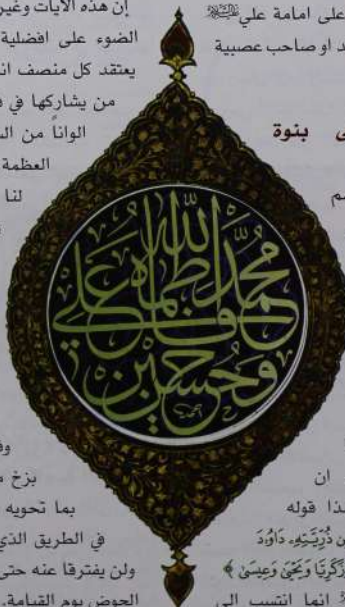 على امامة علي
د او صاحب عصبية
ى بنوة
م
ان
ذا قوله
ن ذُرِّيَّتِهِ دَاوُودَ
زَكَرِيَّا وَيَحْيَى وَعِيسَى ﴾
انما انتسب الى
الله
محمد فاطمة علي
وحسين
إن هذه الآيات وغير
الضوء على افضلية
يعتقد كل منصف ان
من يشاركها في ف
الواناً من ال
العظمة
لنا
وف
بزخ م
بما تحويه
في الطريق الذي
ولن يفترقا عنه حتى
الحوض يوم القيامة.